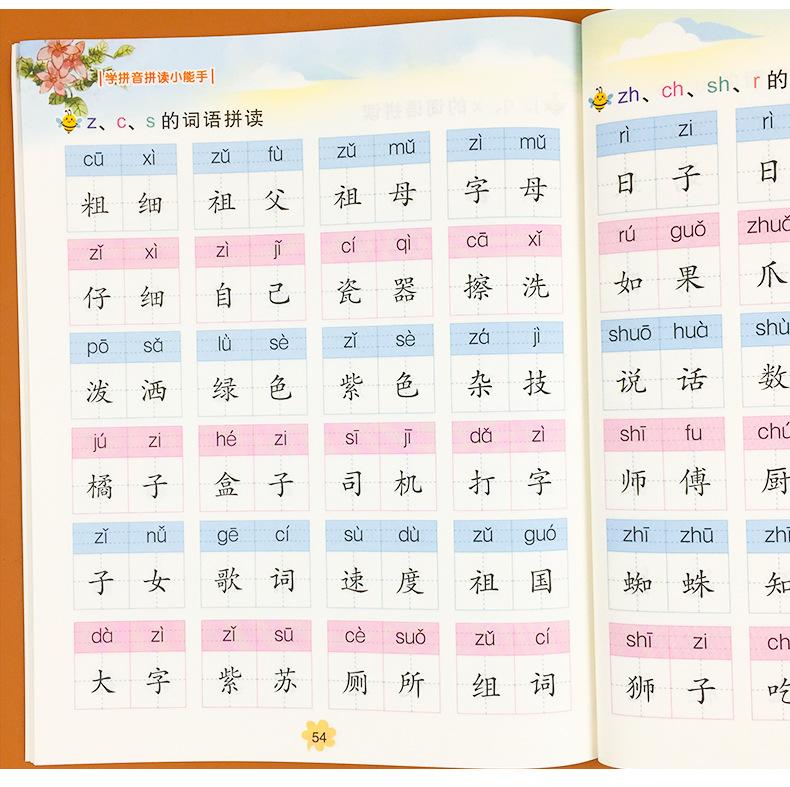 学拼音拼读小能手
z、c、s 的词语拼读
cū xì zǔ fù zǔ mǔ zì mǔ
粗 细 祖 父 祖 母 字 母
zǐ xì zì jǐ cí qì cā xǐ
仔 细 自 己 瓷 器 擦 洗
pō sǎ lǜ sè zǐ sè zá jì
泼 洒 绿 色 紫 色 杂 技
jú zi hé zi sī jī dǎ zì
橘 子 盒 子 司 机 打 字
zǐ nǚ gē cí sù dù zǔ guó
子 女 歌 词 速 度 祖 国
dà zì zǐ sū cè suǒ zǔ cí
大 字 紫 苏 厕 所 组 词
54
zh、ch、sh、r 的
rì zi rì
日 子 日
rú guǒ zhuǎ
如 果 爪
shuō huà shù
说 话 数
shī fu chú
师 傅 厨
zhī zhū zhī
蜘 蛛 知
shī zi ch
狮 子 吃